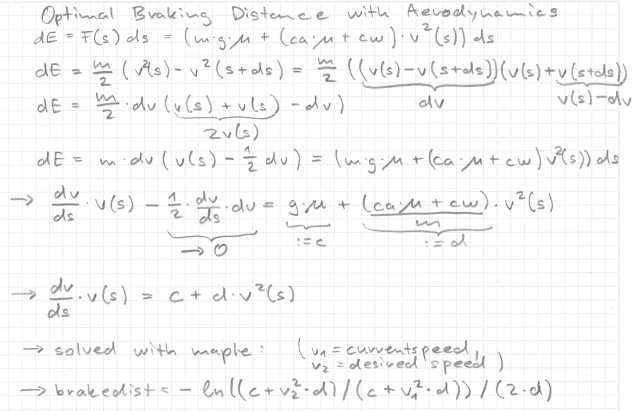 Optimal Braking Distance with Aerodynamics
dE = F(s) ds = (m·g·μ + (ca·μ + cw)·v²(s)) ds
dE = m/2 (v²(s) - v²(s+ds)) = m/2 ((v(s) - v(s+ds))(v(s) + v(s+ds))
dv v(s)-dv
dE = m/2 · dv (v(s) + v(s) - dv)
2v(s)
dE = m·dv (v(s) - 1/2 dv) = (m·g·μ + (ca·μ + cw) v²(s)) ds
→ dv/ds · v(s) - 1/2 · dv/ds · dv = g·μ + (ca·μ + cw)/m · v²(s)
→ 0 := c := d
→ dv/ds · v(s) = c + d·v²(s)
→ solved with maple: (v₁ = currentspeed,
v₂ = desired speed)
→ brakedist = - ln((c + v₂²·d)/(c + v₁²·d))/(2·d)